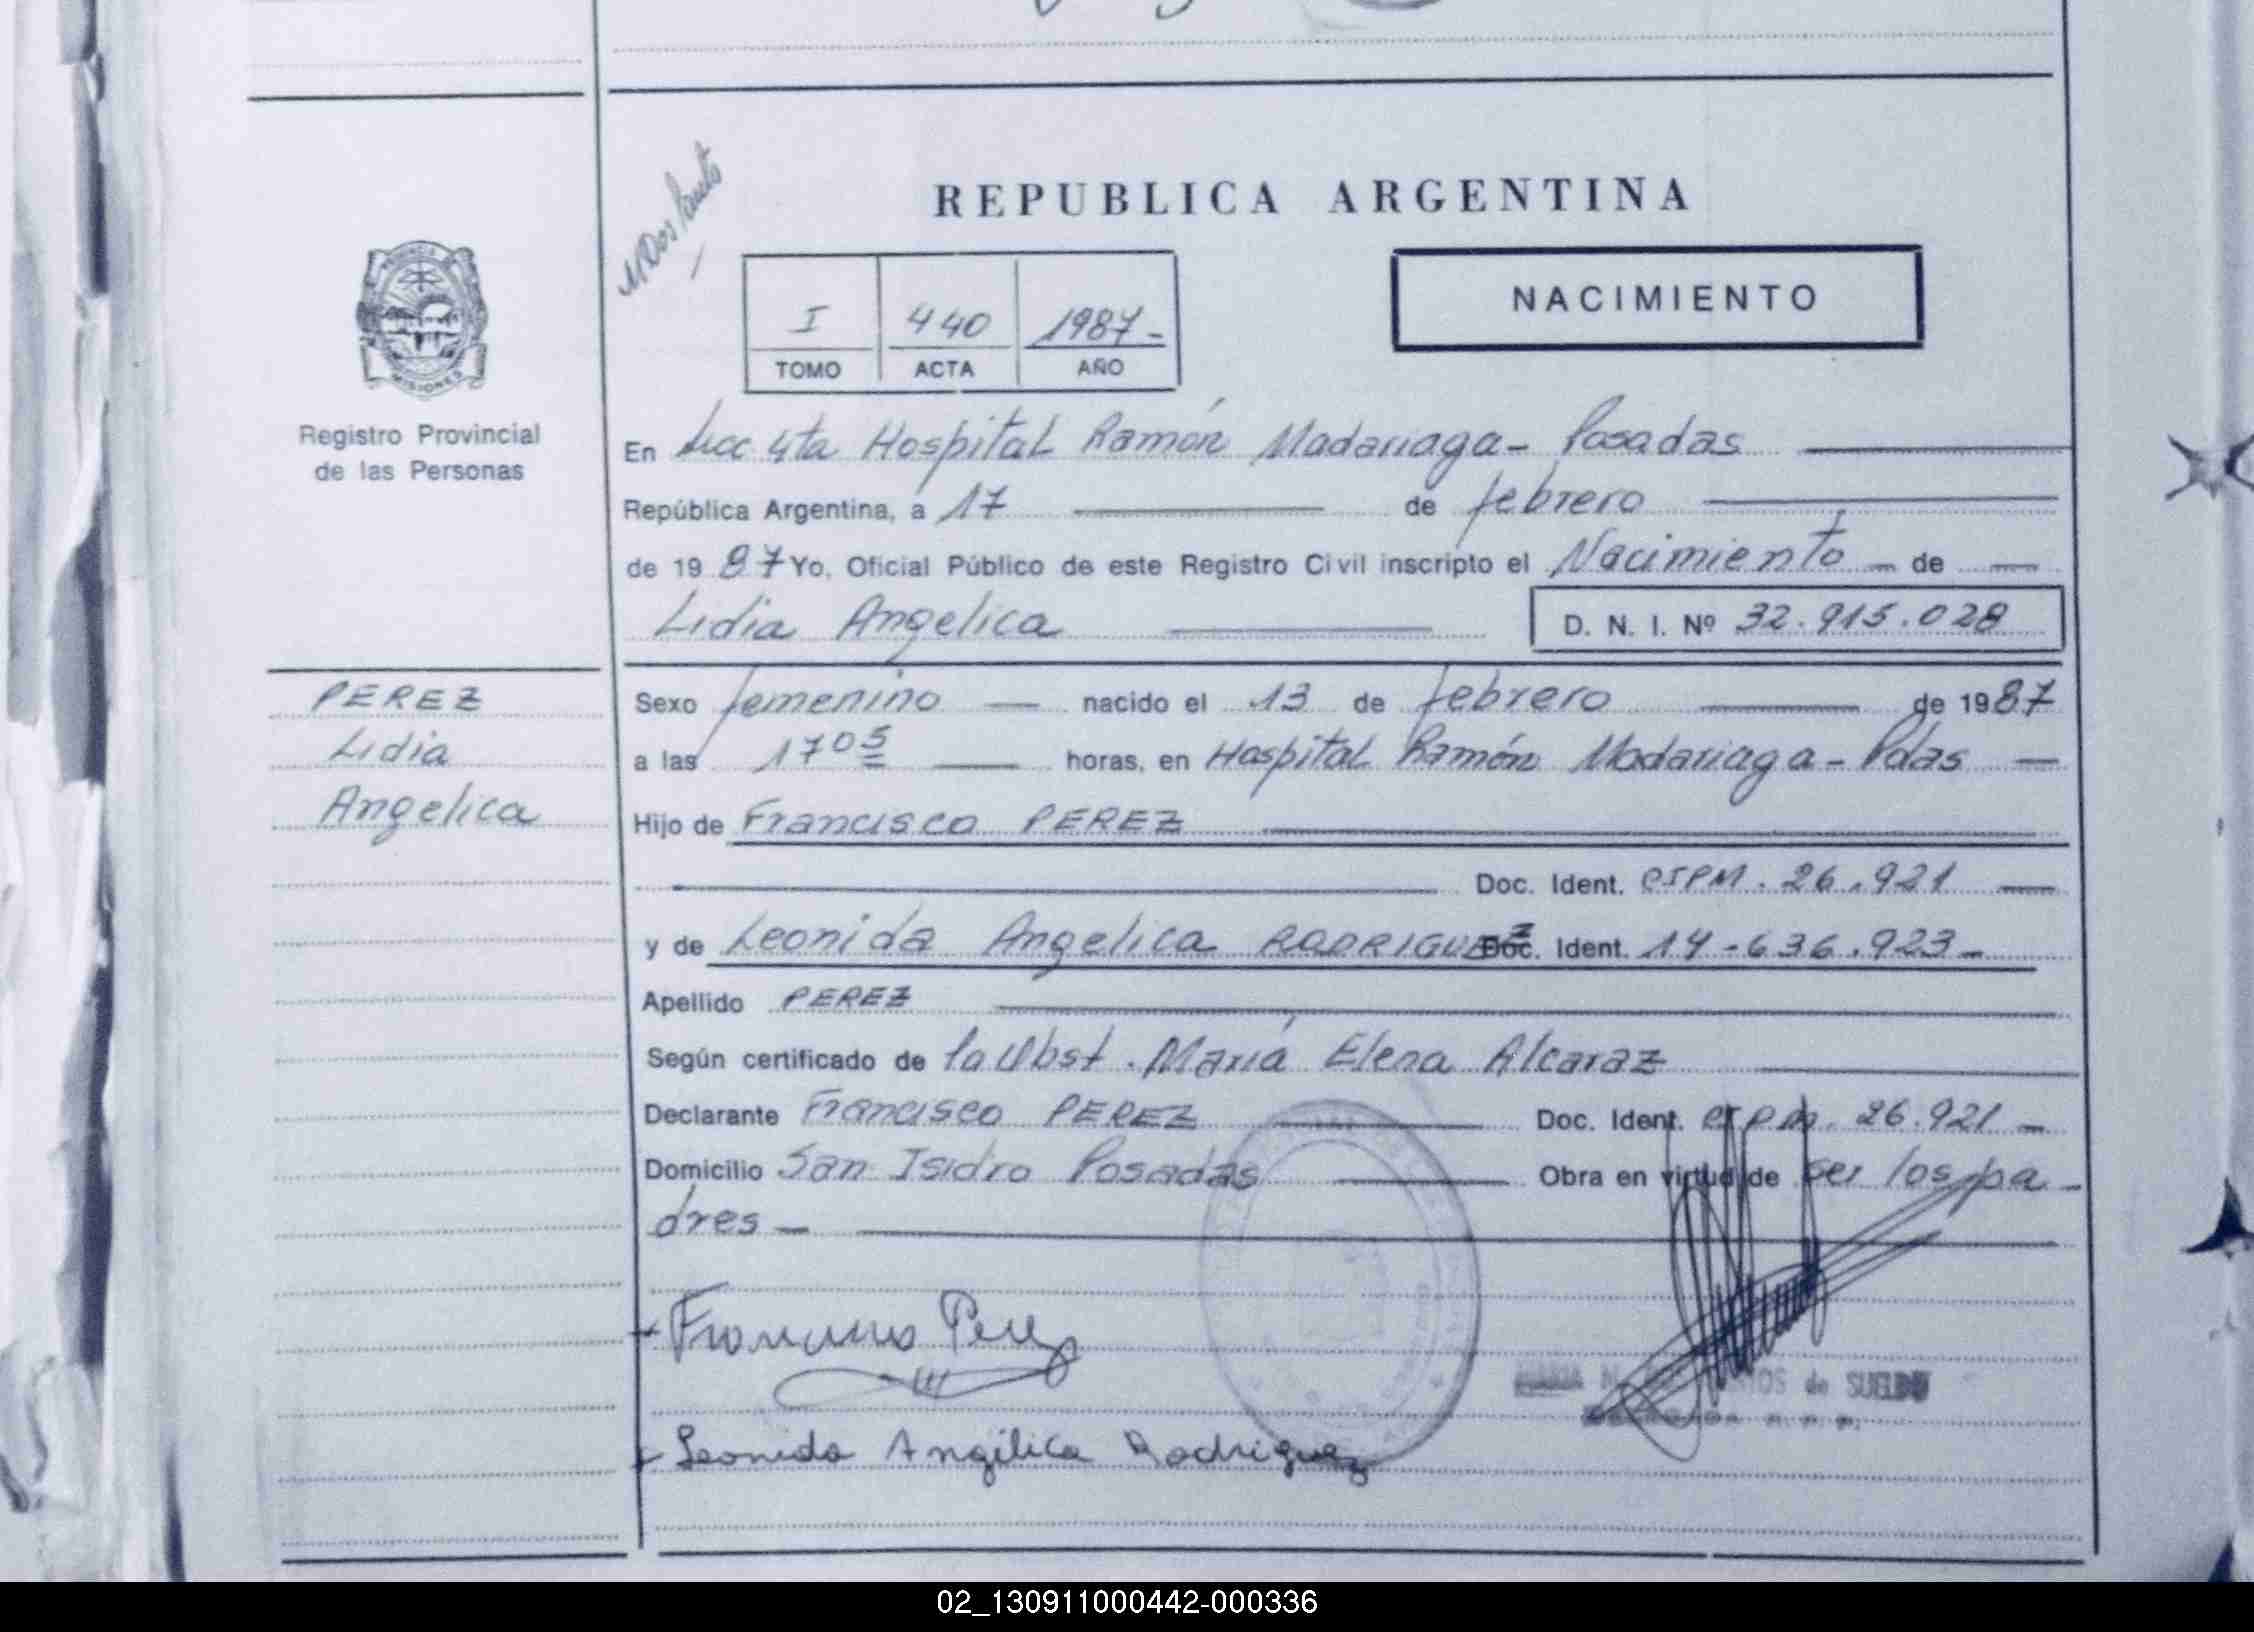 REPUBLICA ARGENTINA
PROVINCIA DE
MISIONES
Registro Provincial
de las Personas
I 440 1987-
TOMO ACTA AÑO
NACIMIENTO
En Secc 4ta Hospital Ramón Madariaga - Posadas
República Argentina, a 17 de febrero
de 1987 Yo, Oficial Público de este Registro Civil inscripto el Nacimiento - de
Lidia Angelica D. N. I. Nº 32.915.028
PEREZ
Lidia
Angelica
Sexo femenino nacido el 13 de febrero de 1987
a las 1705 horas, en Hospital Ramón Madariaga - Pdas
Hijo de Francisco PEREZ
Doc. Ident. CIPM. 26.921
y de Leonida Angelica RODRIGUEZ Doc. Ident. 14-636.923-
Apellido PEREZ
Según certificado de la Obst. María Elena Alcaraz
Declarante Francisco PEREZ Doc. Ident. CIPM. 26.921 -
Domicilio San Isidro Posadas Obra en virtud de ser los pa-
dres -
Francisco Perez
Leonida Angélica Rodriguez
MARIA M. de SUELDO
02_130911000442-000336